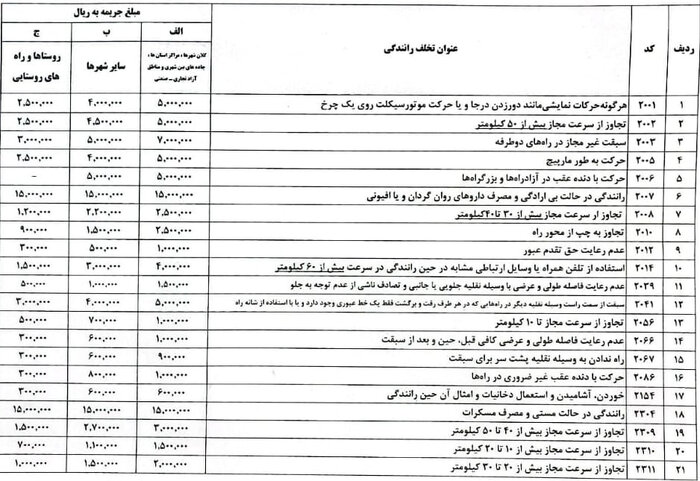 ردیف | کد | عنوان تخلف رانندگی | مبلغ جریمه به ریال
الف | ب | ج
کلان شهرها، مراکز استان ها، جاده های بین شهری و مناطق آزاد تجاری – صنعتی | سایر شهرها | روستاها و راه های روستایی
۱ | ۲۰۰۱ | هرگونه حرکات نمایشی مانند دورزدن درجا و یا حرکت موتورسیکلت روی یک چرخ | ۵,۰۰۰,۰۰۰ | ۴,۰۰۰,۰۰۰ | ۲,۵۰۰,۰۰۰
۲ | ۲۰۰۲ | تجاوز از سرعت مجاز بیش از ۵۰ کیلومتر | ۵,۰۰۰,۰۰۰ | ۴,۵۰۰,۰۰۰ | ۲,۵۰۰,۰۰۰
۳ | ۲۰۰۳ | سبقت غیر مجاز در راه‌های دوطرفه | ۷,۰۰۰,۰۰۰ | ۵,۰۰۰,۰۰۰ | ۳,۰۰۰,۰۰۰
۴ | ۲۰۰۵ | حرکت به طور مارپیچ | ۵,۰۰۰,۰۰۰ | ۴,۰۰۰,۰۰۰ | ۲,۵۰۰,۰۰۰
۵ | ۲۰۰۶ | حرکت با دنده عقب در آزادراه‌ها و بزرگراه‌ها | ۵,۰۰۰,۰۰۰ | ۵,۰۰۰,۰۰۰ | –
۶ | ۲۰۰۷ | رانندگی در حالت بی ارادگی و مصرف داروهای روان گردان و یا افیونی | ۱۵,۰۰۰,۰۰۰ | ۱۵,۰۰۰,۰۰۰ | ۱۵,۰۰۰,۰۰۰
۷ | ۲۰۰۸ | تجاوز از سرعت مجاز بیش از ۳۰ تا۴۰کیلومتر | ۲,۵۰۰,۰۰۰ | ۲,۲۰۰,۰۰۰ | ۱,۲۰۰,۰۰۰
۸ | ۲۰۱۰ | تجاوز به چپ از محور راه | ۲,۵۰۰,۰۰۰ | ۱,۵۰۰,۰۰۰ | ۹۰۰,۰۰۰
۹ | ۲۰۱۲ | عدم رعایت حق تقدم عبور | ۱,۰۰۰,۰۰۰ | ۵۰۰,۰۰۰ | ۳۰۰,۰۰۰
۱۰ | ۲۰۱۴ | استفاده از تلفن همراه یا وسایل ارتباطی مشابه در حین رانندگی در سرعت بیش از ۶۰ کیلومتر | ۴,۰۰۰,۰۰۰ | ۳,۰۰۰,۰۰۰ | ۱,۵۰۰,۰۰۰
۱۱ | ۲۰۳۹ | عدم رعایت فاصله طولی و عرضی با وسیله نقلیه جلویی یا جانبی و تصادف ناشی از عدم توجه به جلو | ۱,۵۰۰,۰۰۰ | ۱,۰۰۰,۰۰۰ | ۵۰۰,۰۰۰
۱۲ | ۲۰۴۱ | سبقت از سمت راست وسیله نقلیه دیگر در راه‌هایی که در هر طرف رفت و برگشت فقط یک خط عبوری وجود دارد و یا با استفاده از شانه راه | ۵,۰۰۰,۰۰۰ | ۴,۰۰۰,۰۰۰ | ۳,۰۰۰,۰۰۰
۱۳ | ۲۰۵۶ | تجاوز از سرعت مجاز تا ۱۰ کیلومتر | ۱,۰۰۰,۰۰۰ | ۷۰۰,۰۰۰ | ۵۰۰,۰۰۰
۱۴ | ۲۰۶۶ | عدم رعایت فاصله طولی و عرضی کافی قبل، حین و بعد از سبقت | ۱,۰۰۰,۰۰۰ | ۶۰۰,۰۰۰ | ۳۰۰,۰۰۰
۱۵ | ۲۰۶۷ | راه ندادن به وسیله نقلیه پشت سر برای سبقت | ۹۰۰,۰۰۰ | ۶۰۰,۰۰۰ | ۳۰۰,۰۰۰
۱۶ | ۲۰۸۶ | حرکت با دنده عقب غیر ضروری در راه‌ها | ۱,۰۰۰,۰۰۰ | ۸۰۰,۰۰۰ | ۳۰۰,۰۰۰
۱۷ | ۲۱۵۴ | خوردن، آشامیدن و استعمال دخانیات و امثال آن حین رانندگی | ۶۰۰,۰۰۰ | ۶۰۰,۰۰۰ | ۳۰۰,۰۰۰
۱۸ | ۲۳۰۴ | رانندگی در حالت مستی و مصرف مسکرات | ۱۵,۰۰۰,۰۰۰ | ۱۵,۰۰۰,۰۰۰ | ۱۵,۰۰۰,۰۰۰
۱۹ | ۲۳۰۹ | تجاوز از سرعت مجاز بیش از ۴۰ تا ۵۰ کیلومتر | ۳,۰۰۰,۰۰۰ | ۲,۷۰۰,۰۰۰ | ۱,۵۰۰,۰۰۰
۲۰ | ۲۳۱۰ | تجاوز از سرعت مجاز بیش از ۱۰ تا ۲۰ کیلومتر | ۱,۵۰۰,۰۰۰ | ۱,۱۰۰,۰۰۰ | ۷۰۰,۰۰۰
۲۱ | ۲۳۱۱ | تجاوز از سرعت مجاز بیش از ۲۰ تا ۳۰ کیلومتر | ۲,۰۰۰,۰۰۰ | ۱,۵۰۰,۰۰۰ | ۱,۰۰۰,۰۰۰